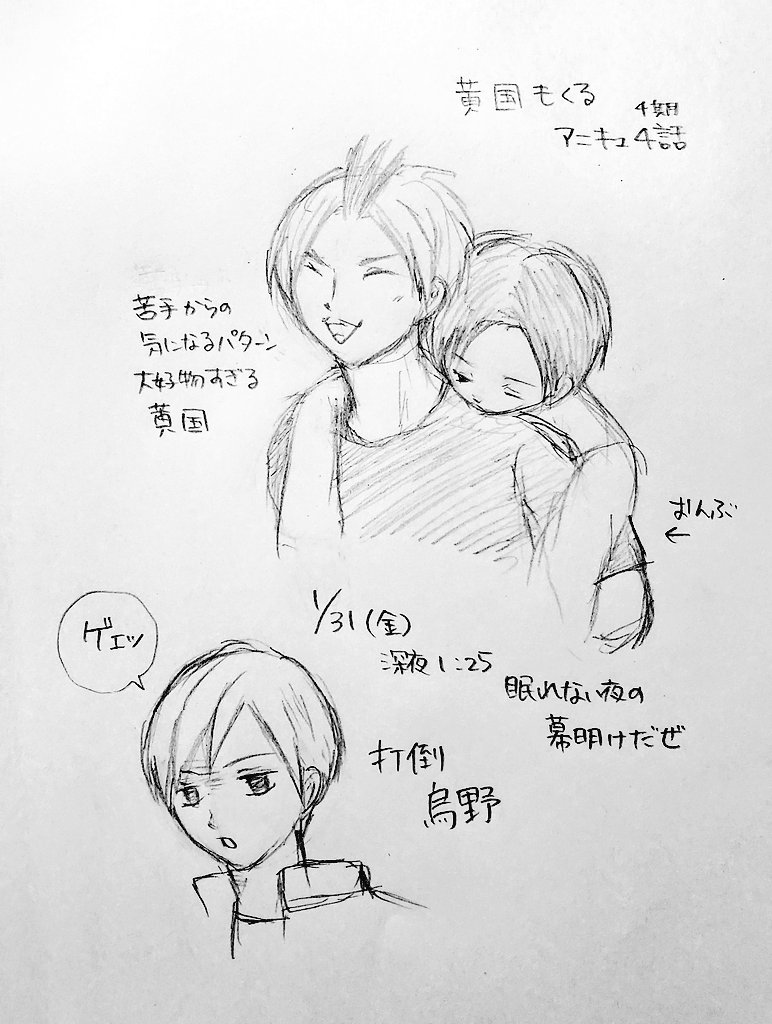 黄国もくる
4期
アニキュ4話
苦手からの
気になるパターン
大好物すぎる
黄国
おんぶ
←
1/31(金)
深夜1:25
眠れない夜の
幕明けだぜ
ゲェッ
打倒
烏野